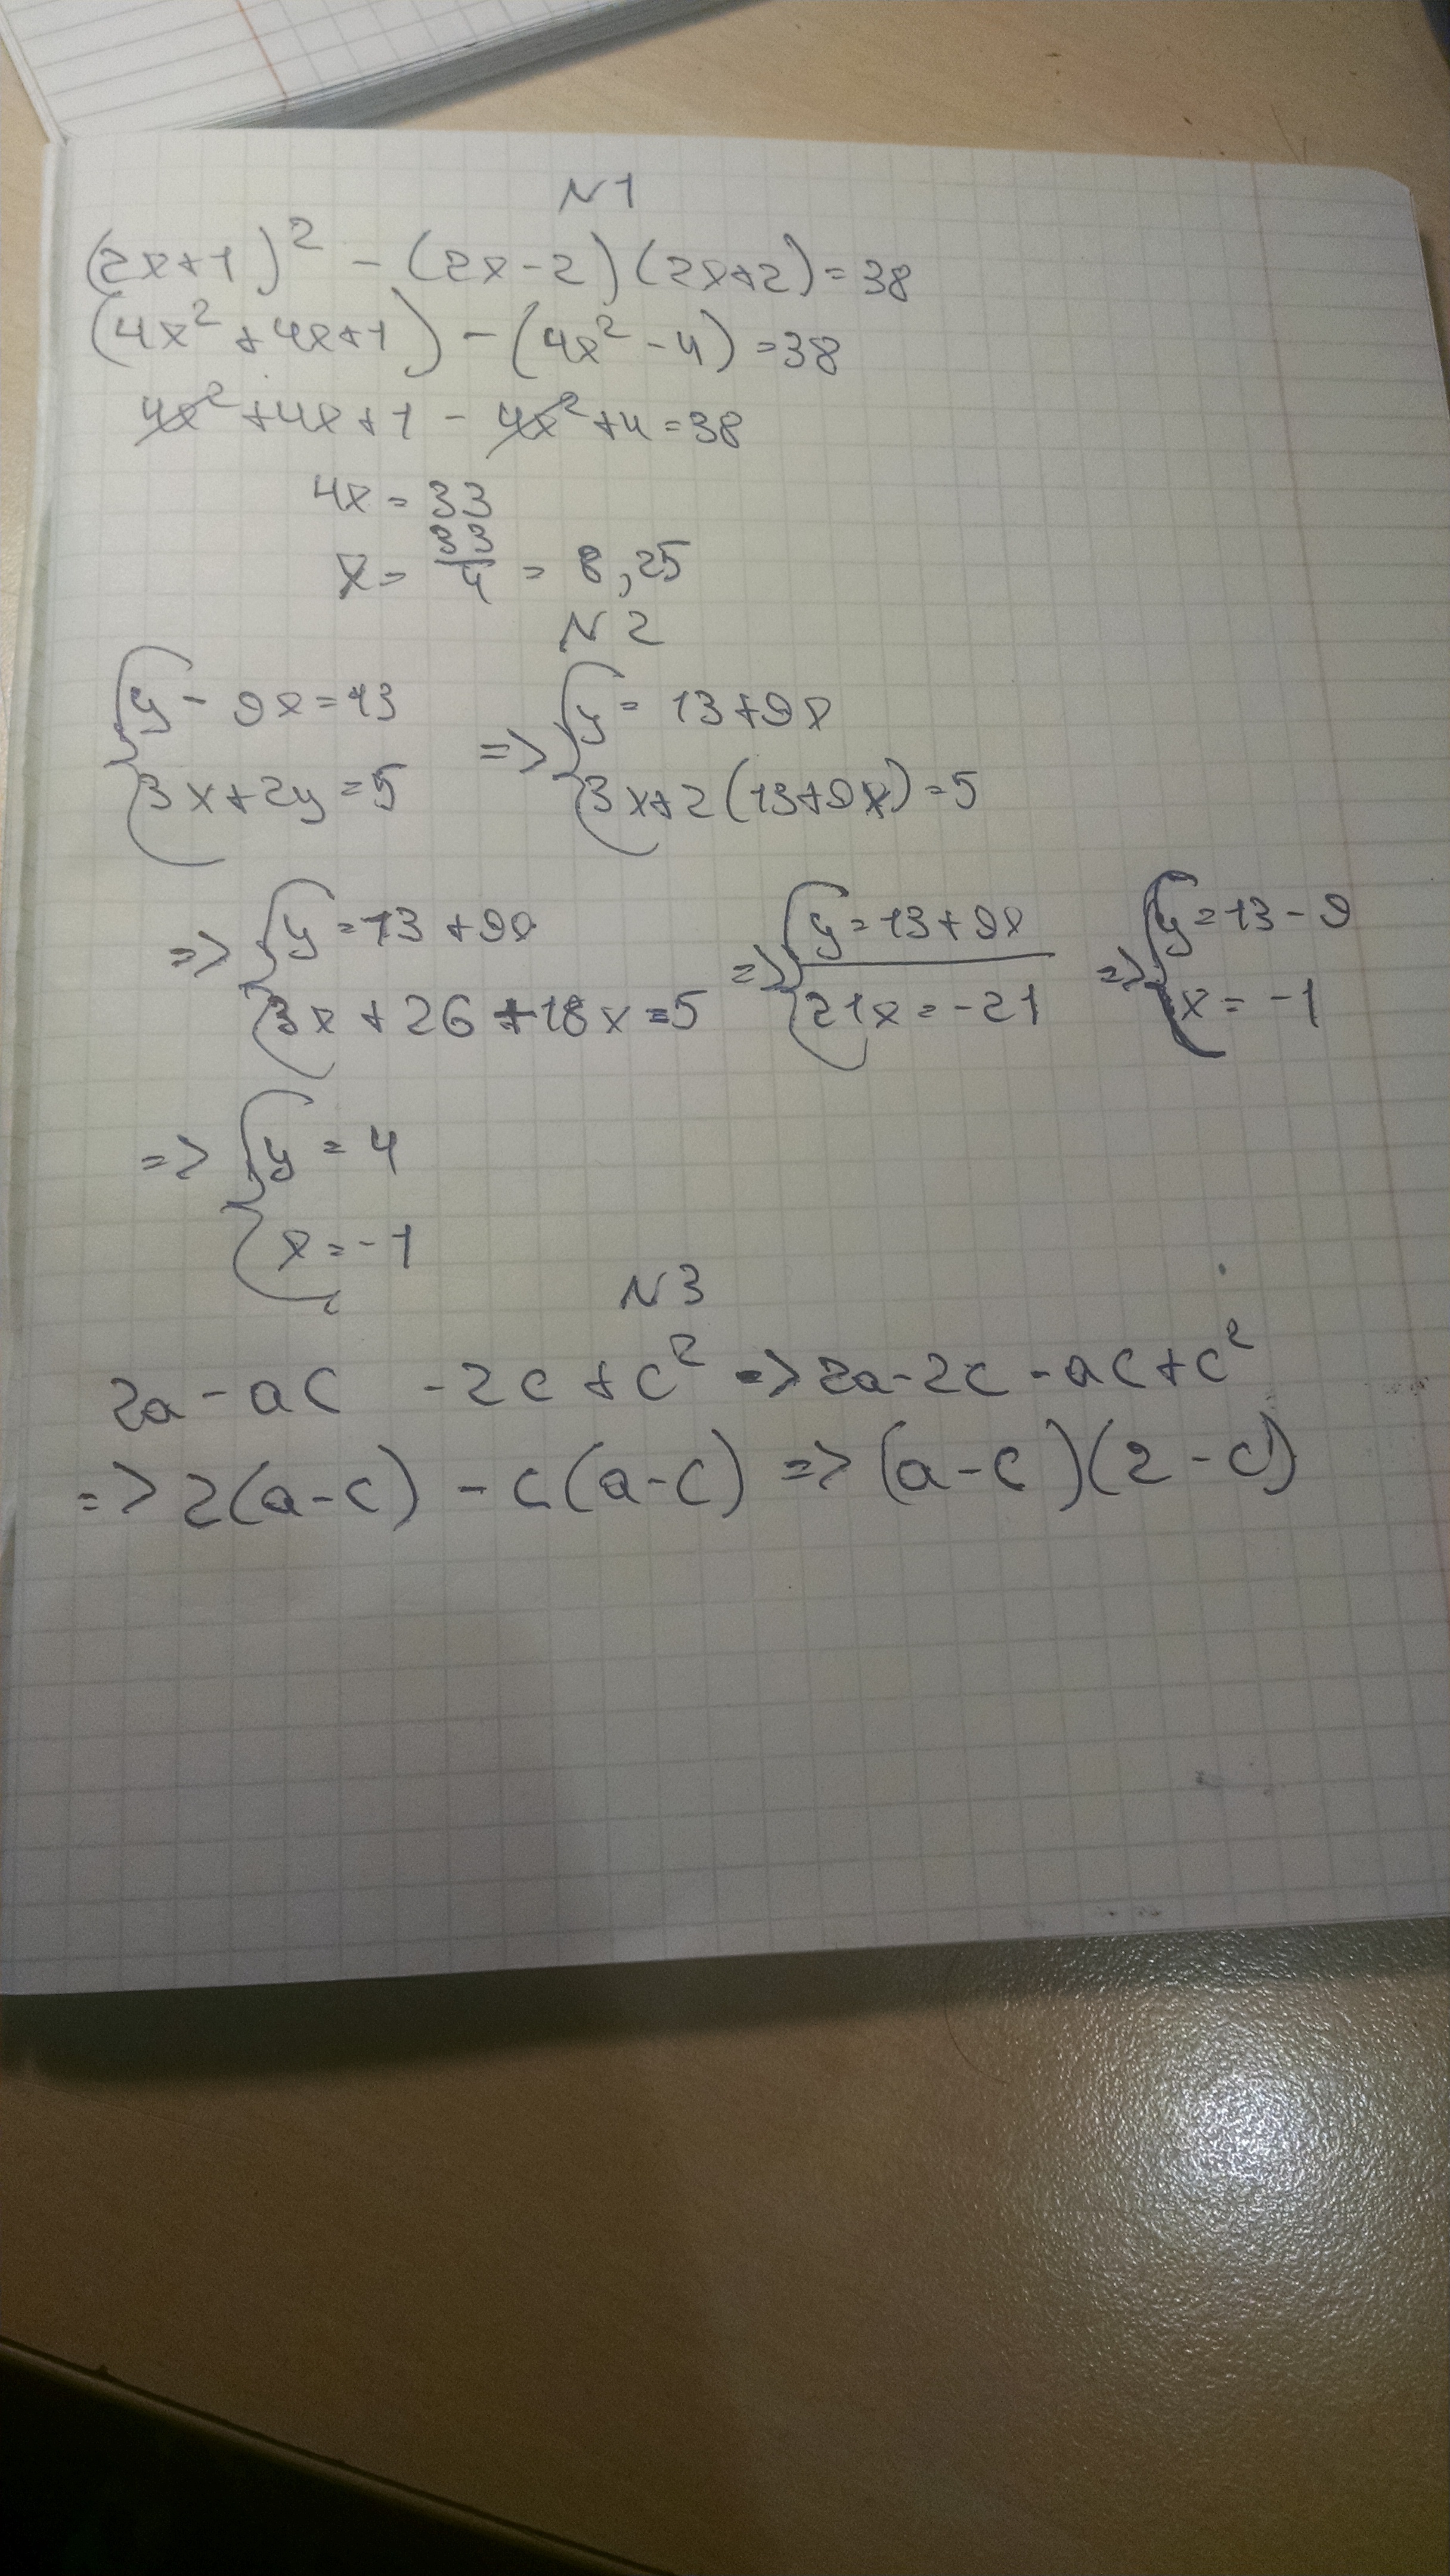 N1
(2x+1)² - (2x-2)(2x+2)=38
(4x²+4x+1) - (4x²-4)=38
4x²+4x+1 - 4x²+4=38
4x=33
x= 33/4 = 8,25
N2
{y-9x=13 => {y=13+9x
{3x+2y=5 {3x+2(13+9x)=5
=> {y=13+9x => {y=13+9x => {y=13-9
{3x+26+18x=5 {21x=-21 {x=-1
=> {y=4
{x=-1
N3
2a-ac -2c+c² => 2a-2c-ac+c²
=> 2(a-c) -c(a-c) => (a-c)(2-c)